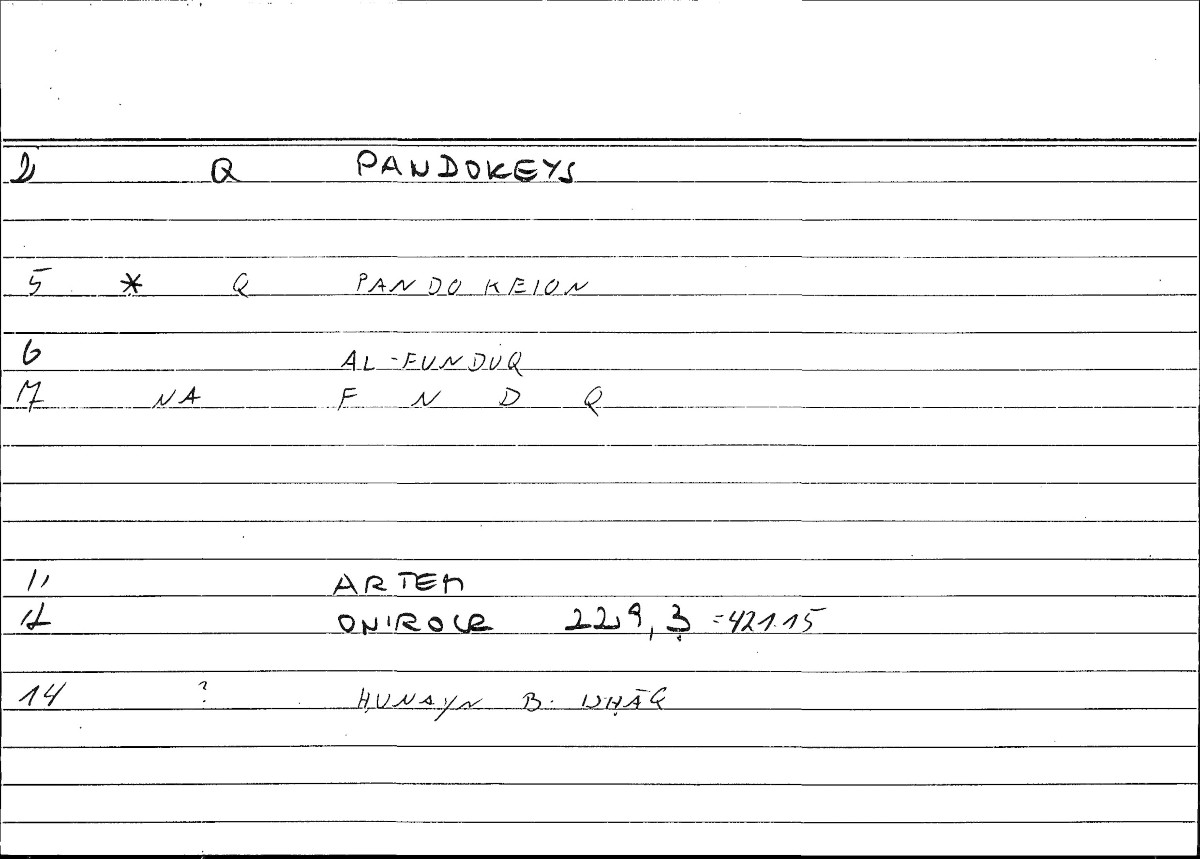 2 Q PANDOKEYS
5 * Q PANDOKEION
6 AL-FUNDUQ
7 NA F N D Q
11 ARTEM
12 ONIROCR 229,3 =421.15
14 ? ḤUNAYN B. ISḤĀQ